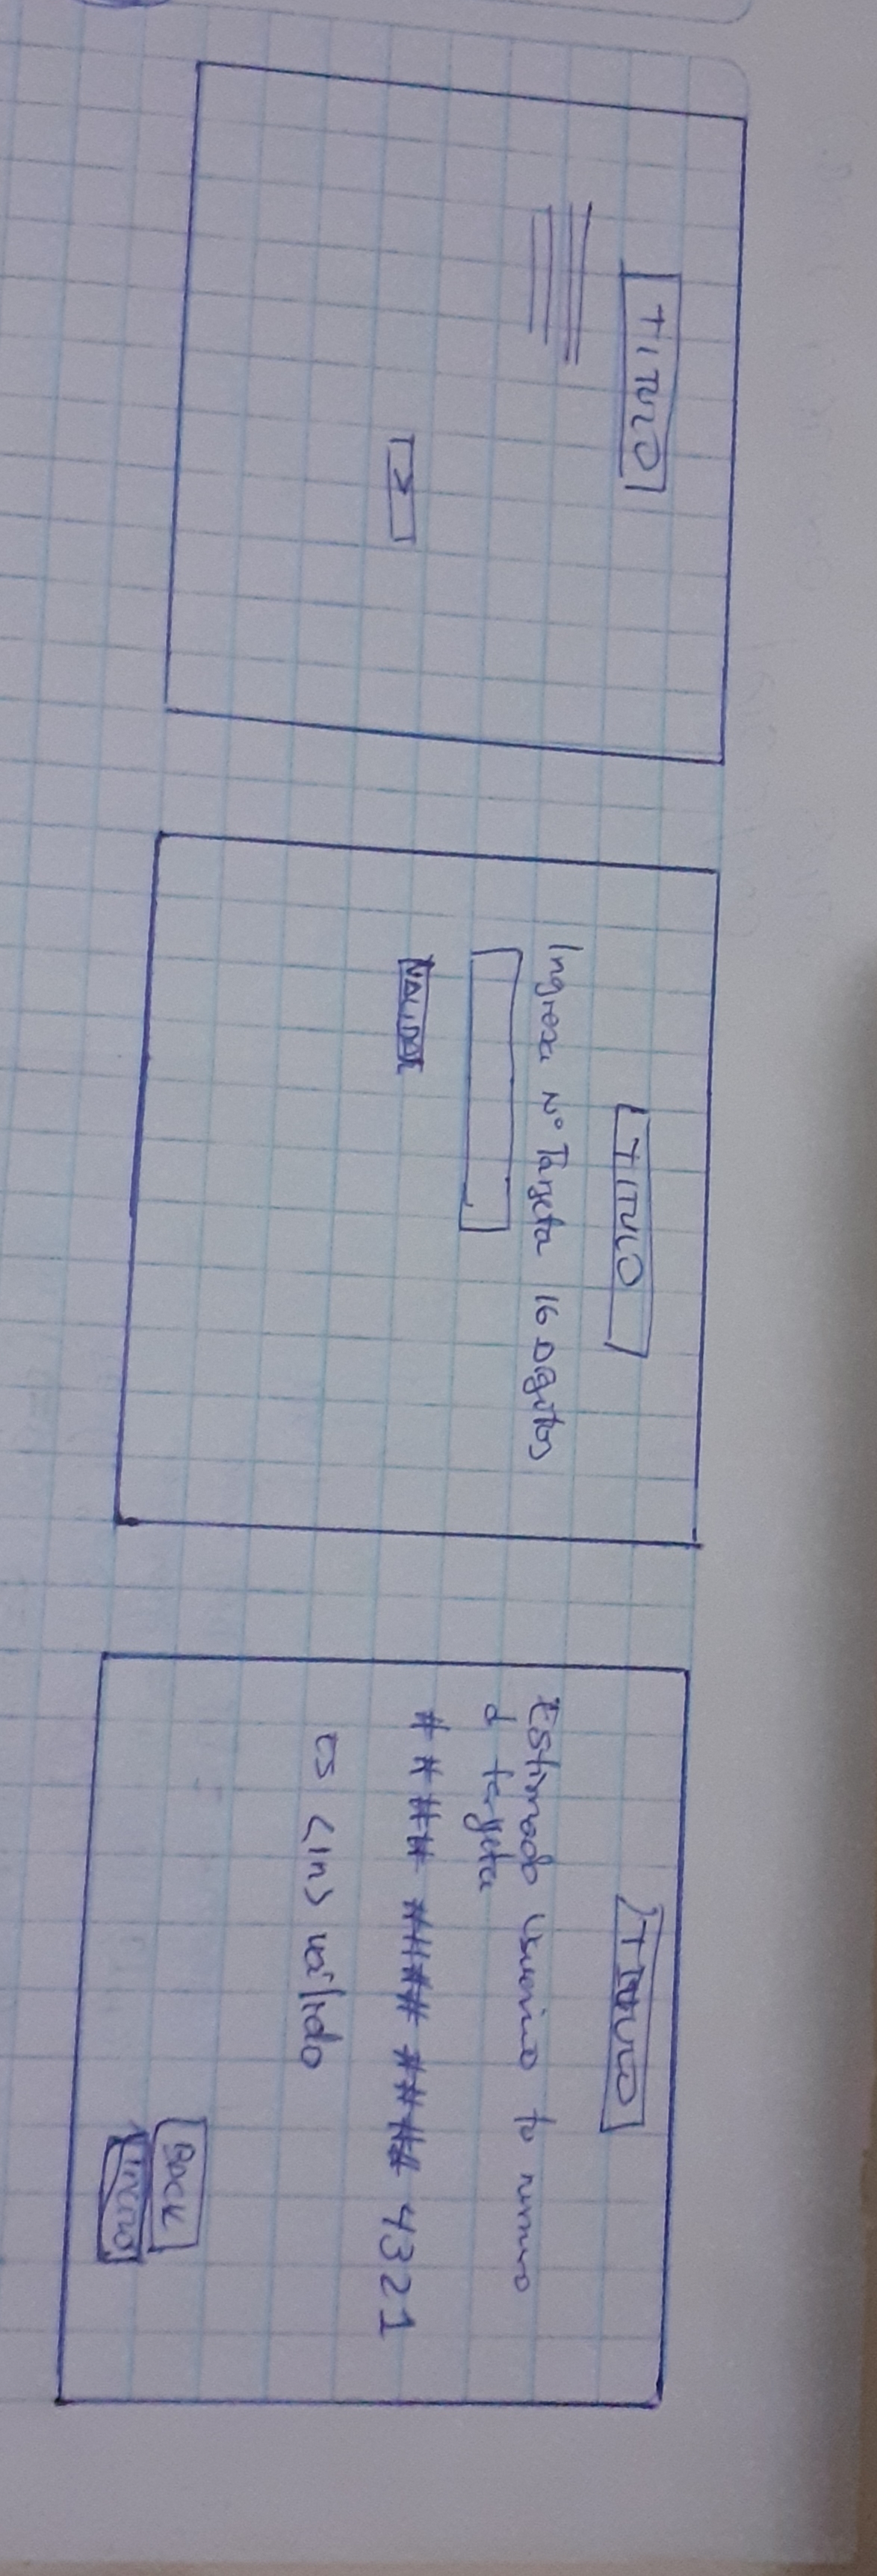 TITULO
>
TITULO
Ingresa N° Targeta 16 Digitos
VALIDAR
TITULO
Estimado usuario tu numero
d targeta
#### #### #### 4321
es <in> válido
BACK
INICIO